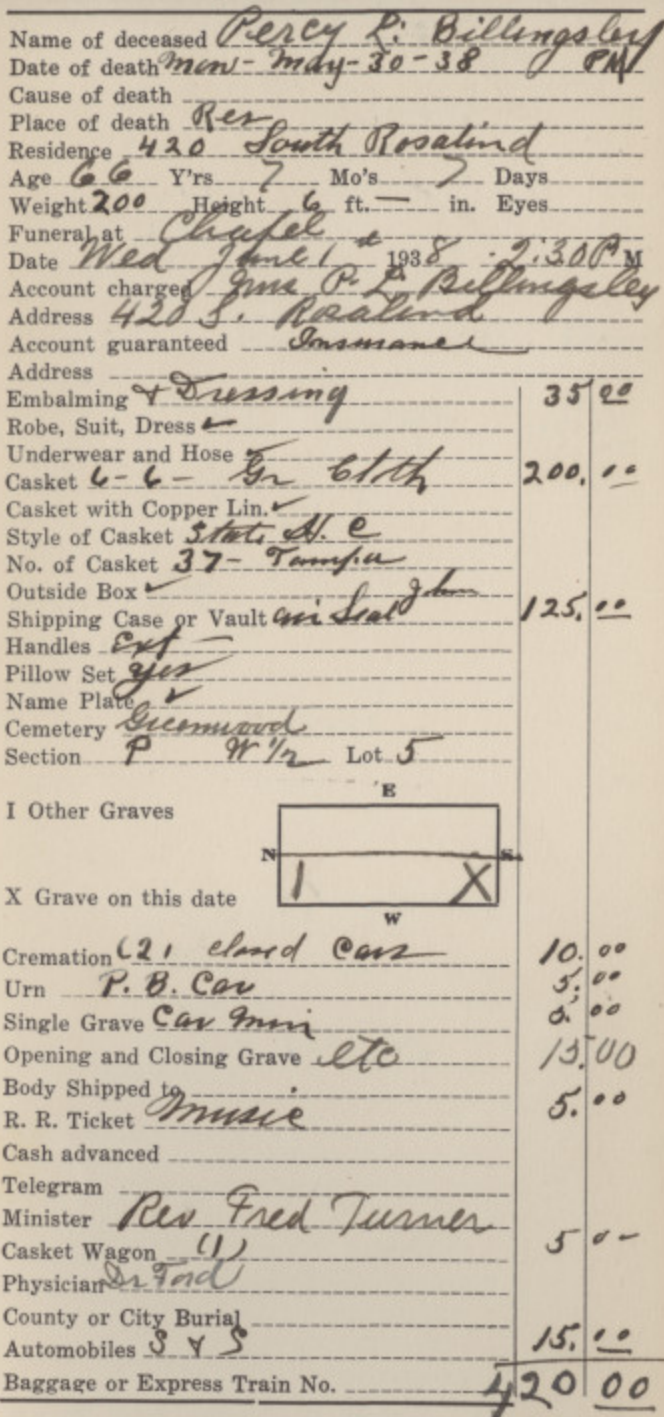 Name of deceased Percy L. Billingsley
Date of death Mon - May - 30 - 38 PM
Cause of death
Place of death Res
Residence 420 South Rosalind
Age 66 Y'rs 7 Mo's 7 Days
Weight 200 Height 6 ft. — in. Eyes
Funeral at Chapel
Date Wed June 1st 1938 2:30 P M
Account charged Mrs P. L. Billingsley
Address 420 S. Rosalind
Account guaranteed Insurance
Address
Embalming & Dressing 35 00
Robe, Suit, Dress ✓
Underwear and Hose ✓
Casket 6 - 6 - Gr Cloth 200. 00
Casket with Copper Lin. ✓
Style of Casket State H. C
No. of Casket 37 - Tampa
Outside Box ✓
Shipping Case or Vault Air Seal 125. 00
Handles Ext —
Pillow Set yes
Name Plate ✓
Cemetery Greenwood
Section P W 1/2 Lot 5
E
I Other Graves
N S.
I X
X Grave on this date
W
Cremation (2) closed Cars 10. 00
Urn P. B. Car 5. 00
Single Grave Car Min 5. 00
Opening and Closing Grave etc 15.00
Body Shipped to
R. R. Ticket Music 5. 00
Cash advanced
Telegram
Minister Rev Fred Turner
Casket Wagon (1) 5 0-
Physician Dr Ford
County or City Burial
Automobiles S & S 15. 00
Baggage or Express Train No. 420 00